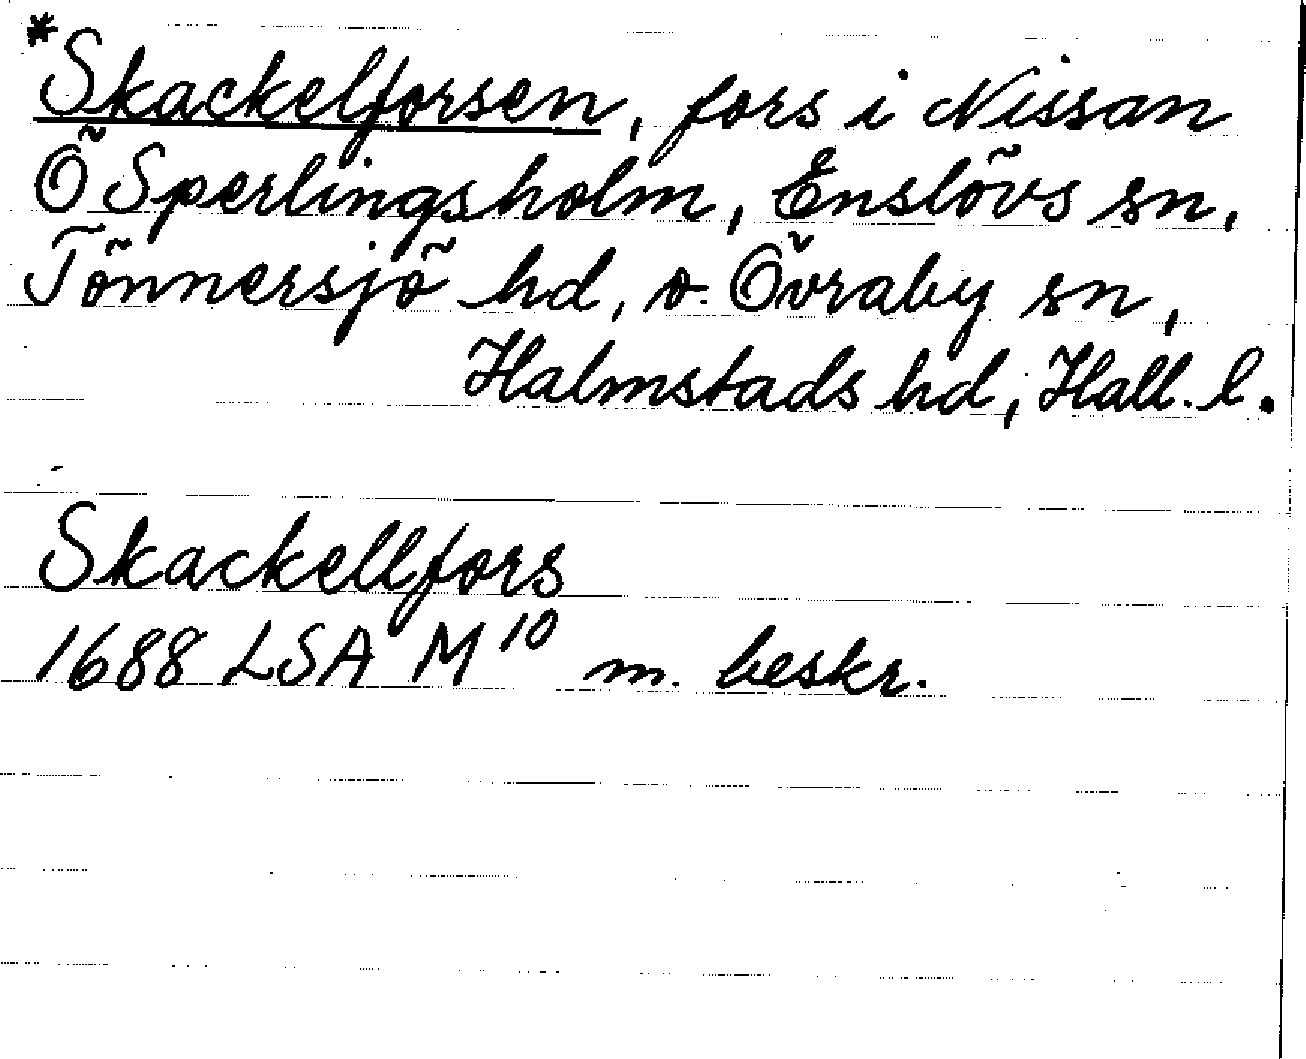 *Skackelforsen, fors i Nissan
Ö Sperlingsholm, Enslövs sn,
Tönnersjö hd, o. Övraby sn,
Halmstads hd, Hall. l.
Skackellfors
1688 LSA M 10 m. beskr.